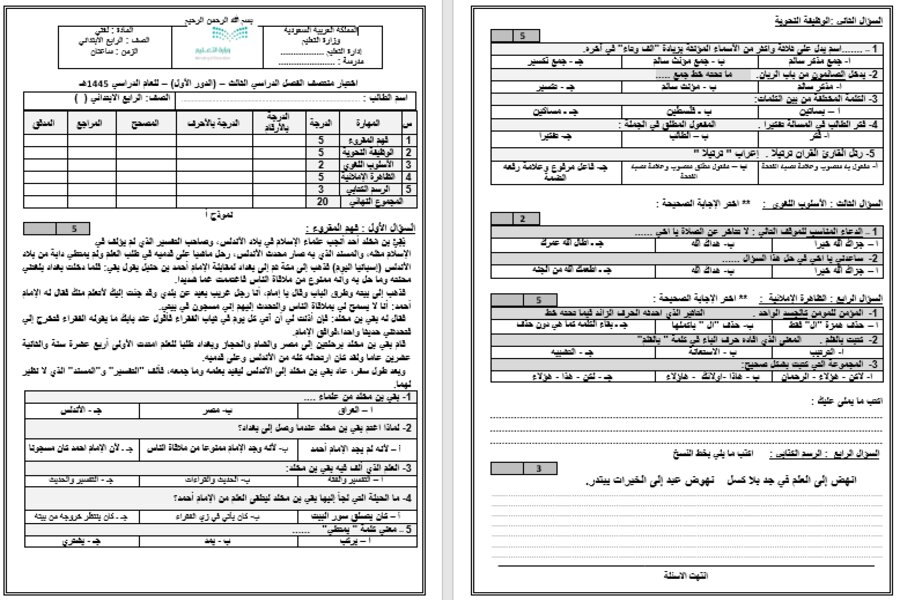 بسم الله الرحمن الرحيم
المملكة العربية السعودية
وزارة التعليم
إدارة التعليم ..................
مدرسة : ..................
وزارة التعليم
المادة : لغتي
الصف : الرابع الابتدائي
الزمن : ساعتان
اختبار منتصف الفصل الدراسي الثالث – (الدور الأول) – للعام الدراسي 1445هـ
اسم الطالب : .................. الصف: الرابع الابتدائي ( )
س المهارة الدرجة الدرجة بالأرقام الدرجة بالأحرف المصحح المراجع المدقق
1 فهم المقروء 5
2 الوظيفة النحوية 5
3 الأسلوب اللغوي 2
4 الظاهرة الإملائية 5
5 الرسم الكتابي 3
المجموع النهائي 20
نموذج أ
السؤال الأول : فهم المقروء : 5
بَقِيُّ بن مخلد أحد أنجب علماء الإسلام في بلاد الأندلس، وصاحب التفسير الذي لم يؤلف في
الإسلام مثله، والمسند الذي به صار محدث الأندلس، رحل ماشيا على قدميه في طلب العلم ولم يمتطي دابة من بلاد
الأندلس (إسبانيا اليوم) فذهب إلى مكة ثم إلى بغداد لمقابلة الإمام أحمد بن حنبل يقول بقي: فلما دخلت بغداد بلغتني
محنته وما حل به وأنه ممنوع من ملاقاة الناس فاغتممت غما شديدا.
فذهب إلى بيته وطرق الباب وقال يا إمام، أنا رجل غريب بعيد عن بلدي وقد جئت إليك لأتعلم منك فقال له الإمام
أحمد: أنا لا يسمح لي بملاقاة الناس والحديث إليهم إني مسجون في بيتي.
فقال له بقي بن مخلد: فإن أذنت لي أن آتي كل يوم في ثياب الفقراء فأقول عند بابك ما يقوله الفقراء فتخرج إلي
فتحدثني حديثا واحدا،فوافق الإمام.
قام بقي بن مخلد برحلتين إلى مصر والشام والحجاز وبغداد طلبا للعلم امتدت الأولى أربع عشرة سنة والثانية
عشرين عاما ولقد كان ارتحاله كله من الأندلس وعلى قدميه.
وبعد طول سفر، عاد بقي بن مخلد إلى الأندلس ليفيد بعلمه وما جمعه، فألف "التفسير" و"المسند" الذي لا نظير
لهما.
1- بقي بن مخلد من علماء ....
أ – العراق ب- مصر جـ - الأندلس
2- لماذا اغتم بقي بن مخلد عندما وصل إلى بغداد؟
أ – لأنه لم يجد الإمام أحمد ب- لأنه وجد الإمام ممنوعا من ملاقاة الناس جـ - لأن الإمام احمد كان مسجونا
3- العلم الذي ألف فيه بقي بن مخلد:
أ – التفسير والفقه ب- الحديث والقراءات جـ - التفسير والحديث
4- ما الحيلة التي لجأ إليها بقي بن مخلد ليتلقى العلم من الإمام أحمد؟
أ – كان يتسلق سور البيت ب- كان يأتي في زي الفقراء جـ - كان ينتظر خروجه من بيته
5 .. معنى كلمة " يمتطي" ......
أ – يركب ب - يمد جـ - يشتري
السؤال الثاني :الوظيفة النحوية
5
1 - .......اسم يدل على ثلاثة وأكثر من الأسماء المؤنثة بزيادة "ألف وتاء" في آخره.
أ- جمع مذكر سالم ب - جمع مؤنث سالم جـ - جمع تكسير
2- يدخل الصائمون من باب الريان. ما تحته خط جمع .....
أ- مذكر سالم ب - مؤنث سالم جـ - تكسير
3- الكلمة المختلفة من بين الكلمات:
أ – بساتين ب – فلسطين جـ - مساكين
4- فكر الطالب في المسألة تفكيرا . المفعول المطلق في الجملة :
أ- فكر ب – الطالب جـ- تفكيرا
5- رتل القارئ القرآن ترتيلا . إعراب " ترتيلا "
أ- مفعول به منصوب وعلامة نصبه الفتحة ب – مفعول مطلق منصوب وعلامة نصبه الفتحة جـ- فاعل مرفوع وعلامة رفعه الضمة
السؤال الثالث : الأسلوب اللغوي : ** اختر الإجابة الصحيحة :
2
1 .. الدعاء المناسب للموقف التالي : لا تتأخر عن الصلاة يا أخي ......
أ – جزاك الله خيرا ب- هداك الله جـ - أطال الله عمرك
2- ساعدني يا أخي في حل هذا السؤال ......
أ – جزاك الله خيرا ب- هداك الله جـ - أطعمك الله من الجنة
السؤال الرابع : الظاهرة الإملائية : ** اختر الإجابة الصحيحة :
5
1- المؤمن للمؤمن كالجسد الواحد . التأثير الذي أحدثه الحرف الزائد فيما تحته خط
أ – حذف همزة "ال" فقط ب- حذف "ال" بأكملها جـ - بقاء الكلمة كما هي دون حذف
2- كتبت بالقلم . المعنى الذي أفاده حرف الباء في كلمة "بالقلم"
أ- الترتيب ب - الاستعانة جـ - التشبيه
3- المجموعة التي كتبت بشكل صحيح:
أ- لاكن - هؤلاء - الرحمان ب - هاذا -أولائك - هاؤلاء جـ - لكن - هذا - هؤلاء
اكتب ما يملى عليك :
السؤال الرابع : الرسم الكتابي : اكتب ما يلي بخط النسخ
3
انهض إلى العلم في جد بلا كسل نهوض عبد إلى الخيرات يبتدر.
انتهت الاسئلة